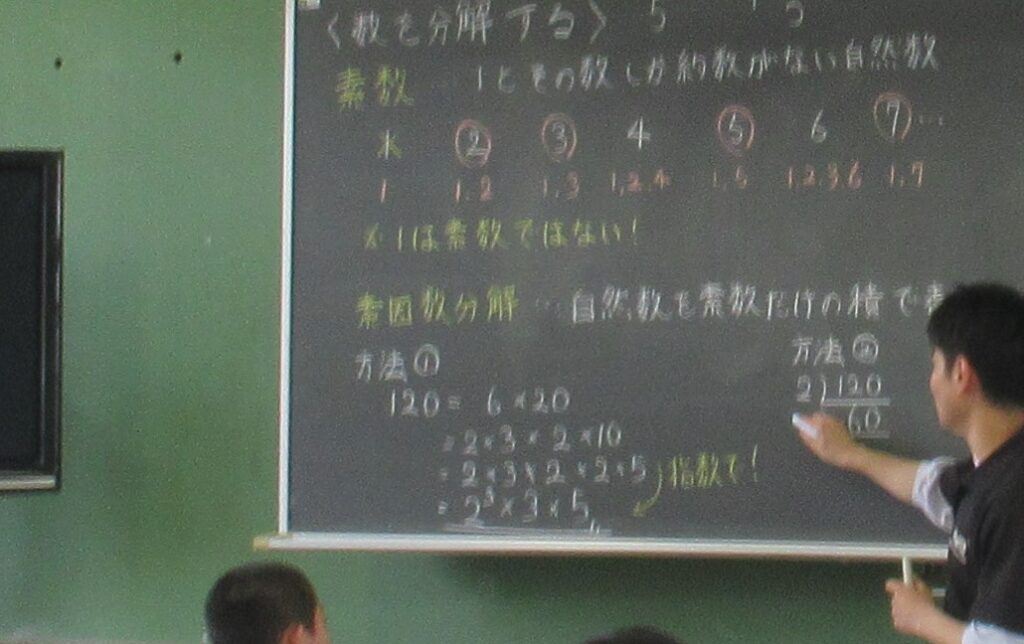 〈数を分解する〉
素数 … 1とその数しか約数がない自然数
② ③ 4 ⑤ 6 ⑦ …
1 1,2 1,3 1,2,4 1,5 1,2,3,6 1,7
※1は素数ではない!
素因数分解 … 自然数を素数だけの積で
方法①
120 = 6 × 20
= 2 × 3 × 2 × 10
= 2 × 3 × 2 × 2 × 5
= 2³ × 3 × 5
指数で!
方法②
2)120
60